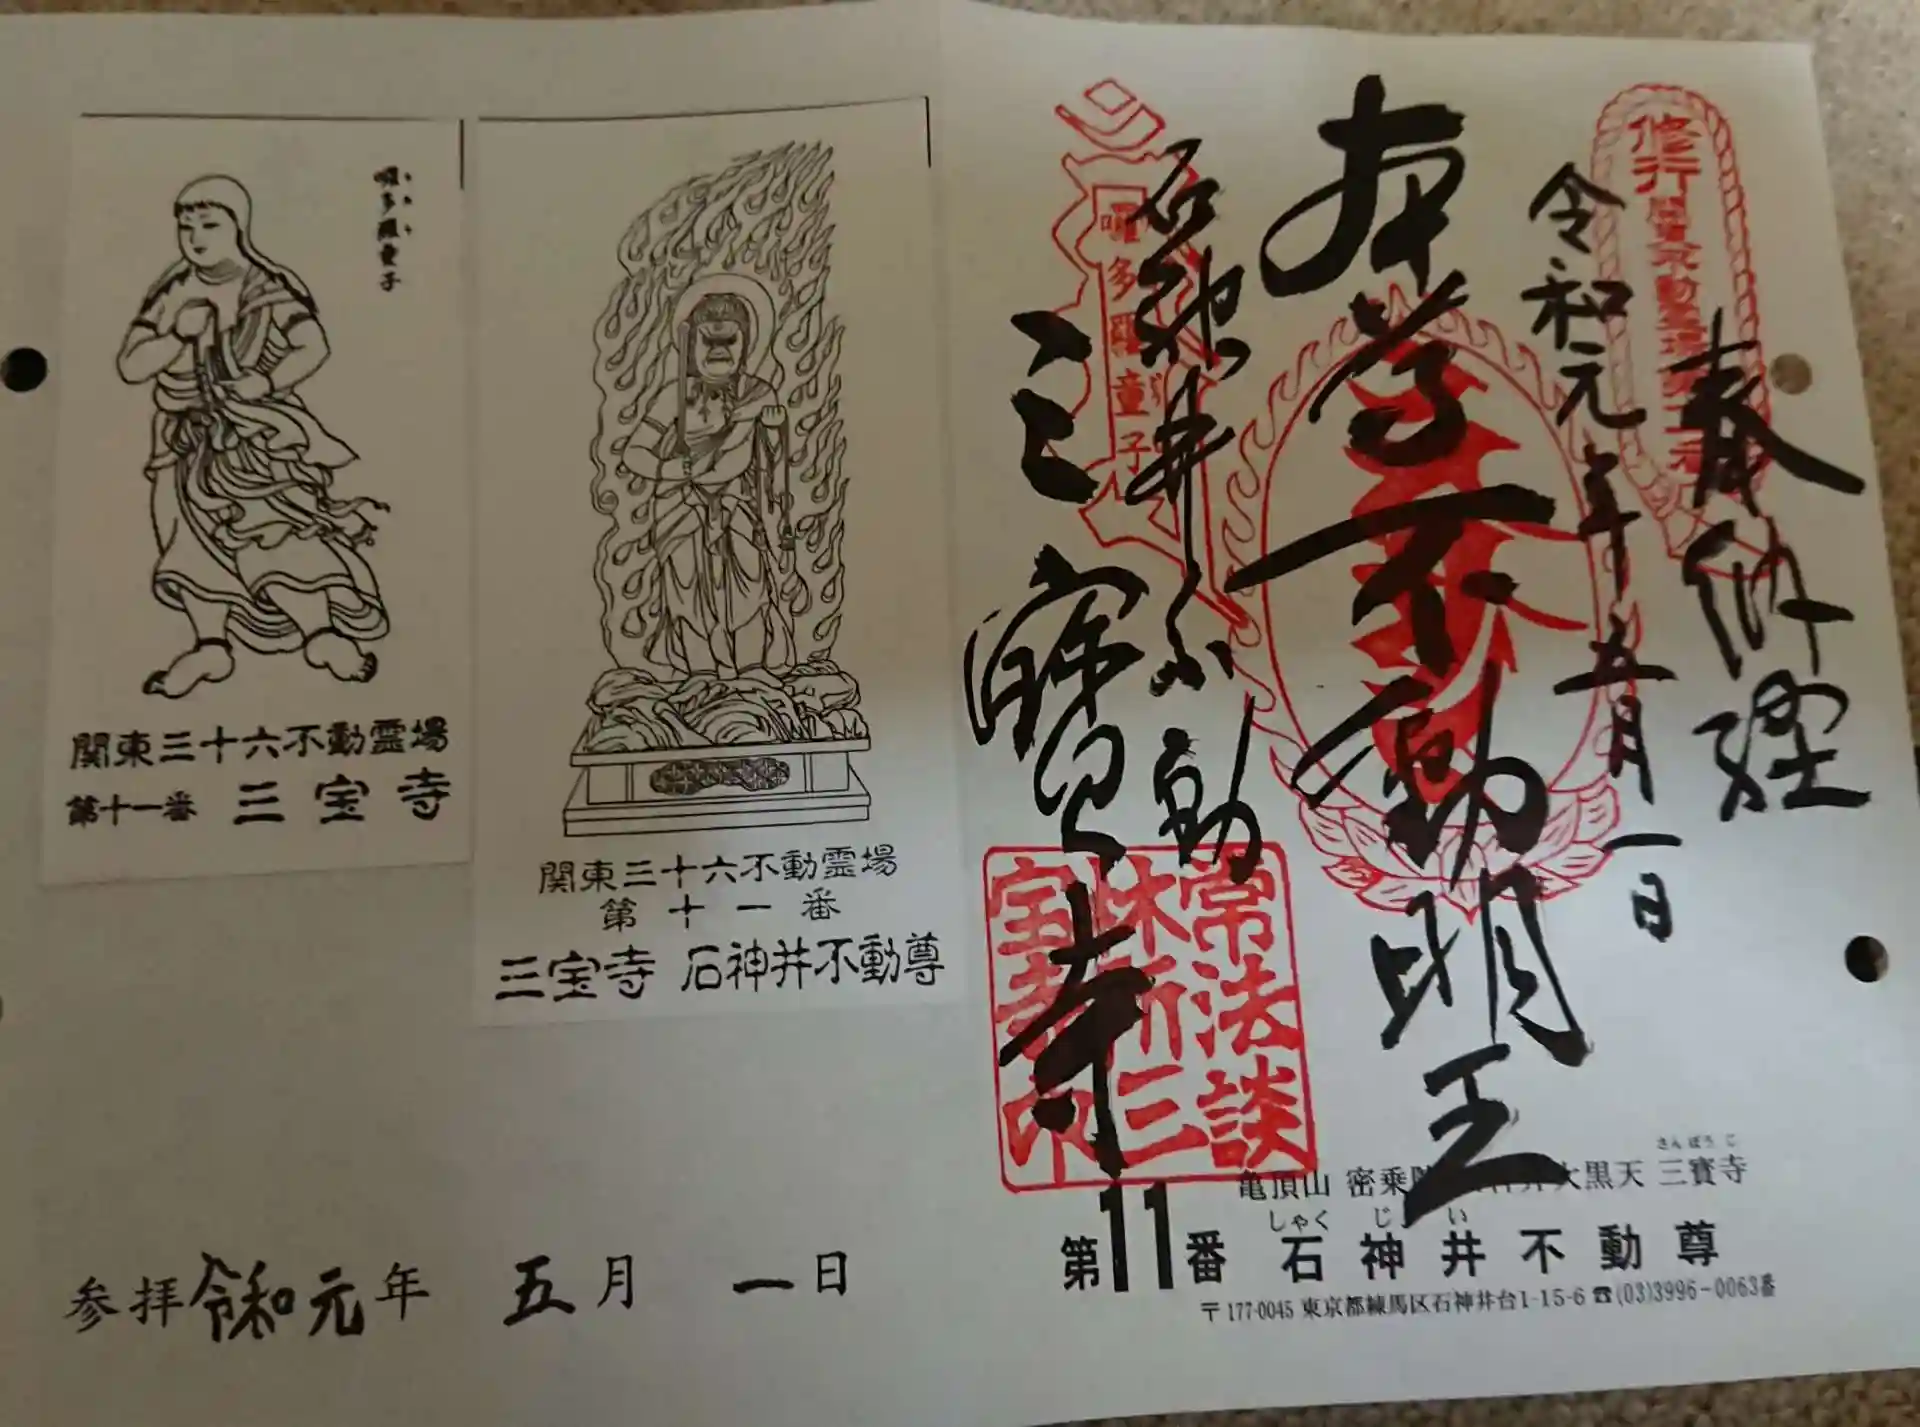 奉納経
修行 関東不動霊場第十一番
令和元年五月一日
本尊不動明王
石神井不動
三寳寺
多羅童子
常法談
林所三
宝寺印
亀頂山 密乗院 大黒天 三寳寺
さんぼうじ
第11番 石神井不動尊
しゃくじい
〒177-0045 東京都練馬区石神井台1-15-6 ☎(03)3996-0063番
関東三十六不動霊場
第十一番
三宝寺 石神井不動尊
多羅童子
関東三十六不動霊場
第十一番 三宝寺
参拝 令和元年 五月 一日